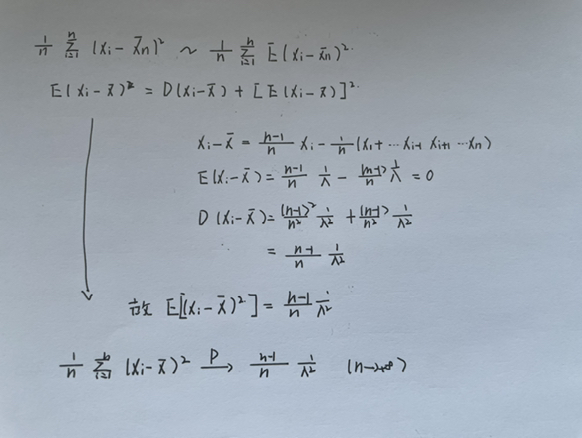 1/n ∑_{i=1}^{n} (Xi - X̄n)² ~ 1/n ∑_{i=1}^{n} E(Xi - X̄n)².
E(Xi - X̄)² = D(Xi - X̄) + [E(Xi - X̄)]².
Xi - X̄ = (n-1)/n Xi - 1/n (X1 + ⋯ Xi-1 Xi+1 ⋯ Xn)
E(Xi - X̄) = (n-1)/n 1/λ - (n-1)/n 1/λ = 0
D(Xi - X̄) = (n-1)²/n² 1/λ² + (n-1)/n² 1/λ²
= (n-1)/n 1/λ²
故 E[(Xi - X̄)²] = (n-1)/n 1/λ²
1/n ∑_{i=1}^{n} (Xi - X̄)² →^P (n-1)/n 1/λ² (n→+∞)